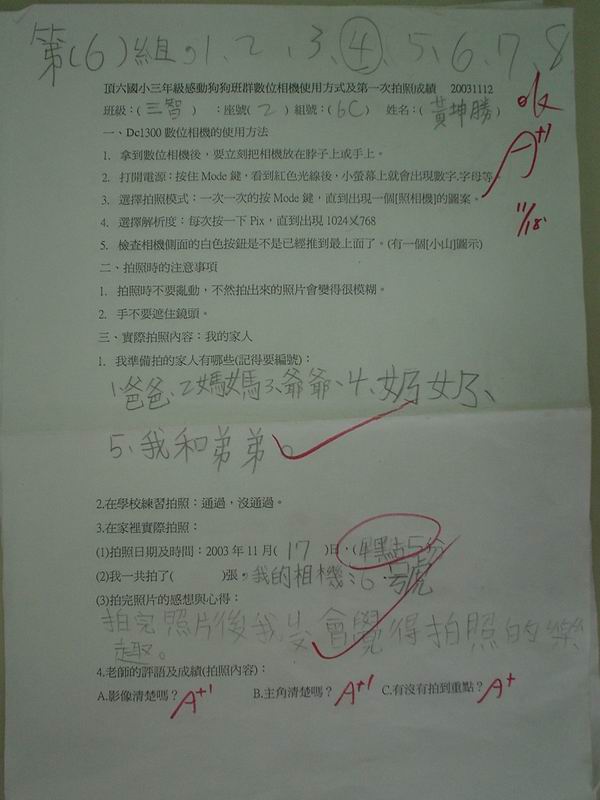 第(6)組。1、2、3、④、5、6、7、8
頂六國小三年級感動狗狗班群數位相機使用方式及第一次拍照成績 20031112
班級：(三智) ：座號(2) 組號：(6C) 姓名：(黃坤勝)
ok
A+1
11/18.
一、Dc1300 數位相機的使用方法
1. 拿到數位相機後，要立刻把相機放在脖子上或手上。
2. 打開電源：按住 Mode 鍵，看到紅色光線後，小螢幕上就會出現數字.字母等。
3. 選擇拍照模式：一次一次的按 Mode 鍵，直到出現一個[照相機]的圖案。
4. 選擇解析度：每次按一下 Pix，直到出現 1024×768
5. 檢查相機側面的白色按鈕是不是已經推到最上面了。(有一個[小山]圖示)
二、拍照時的注意事項
1. 拍照時不要亂動，不然拍出來的照片會變得很模糊。
2. 手不要遮住鏡頭。
三、實際拍照內容：我的家人
1. 我準備拍的家人有哪些(記得要編號)：
1爸爸、2媽媽3、爺爺、4、奶奶、
5、我和弟弟。
2.在學校練習拍照：通過，沒通過。
3.在家裡實際拍照：
(1)拍照日期及時間：2003 年 11 月( 17 )日，(4點5分
(2)我一共拍了( )張，我的相機：6號
(3)拍完照片的感想與心得：
拍完照片後我 會覺得拍照的樂
趣。
4.老師的評語及成績(拍照內容)：
A.影像清楚嗎？A+1 B.主角清楚嗎？A+1 C.有沒有拍到重點？A+